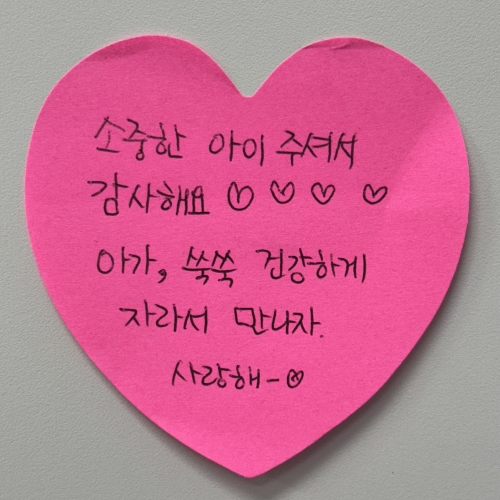 소중한 아이 주셔서
감사해요 ♡ ♡ ♡ ♡
아가, 쑥쑥 건강하게
자라서 만나자.
사랑해-♡